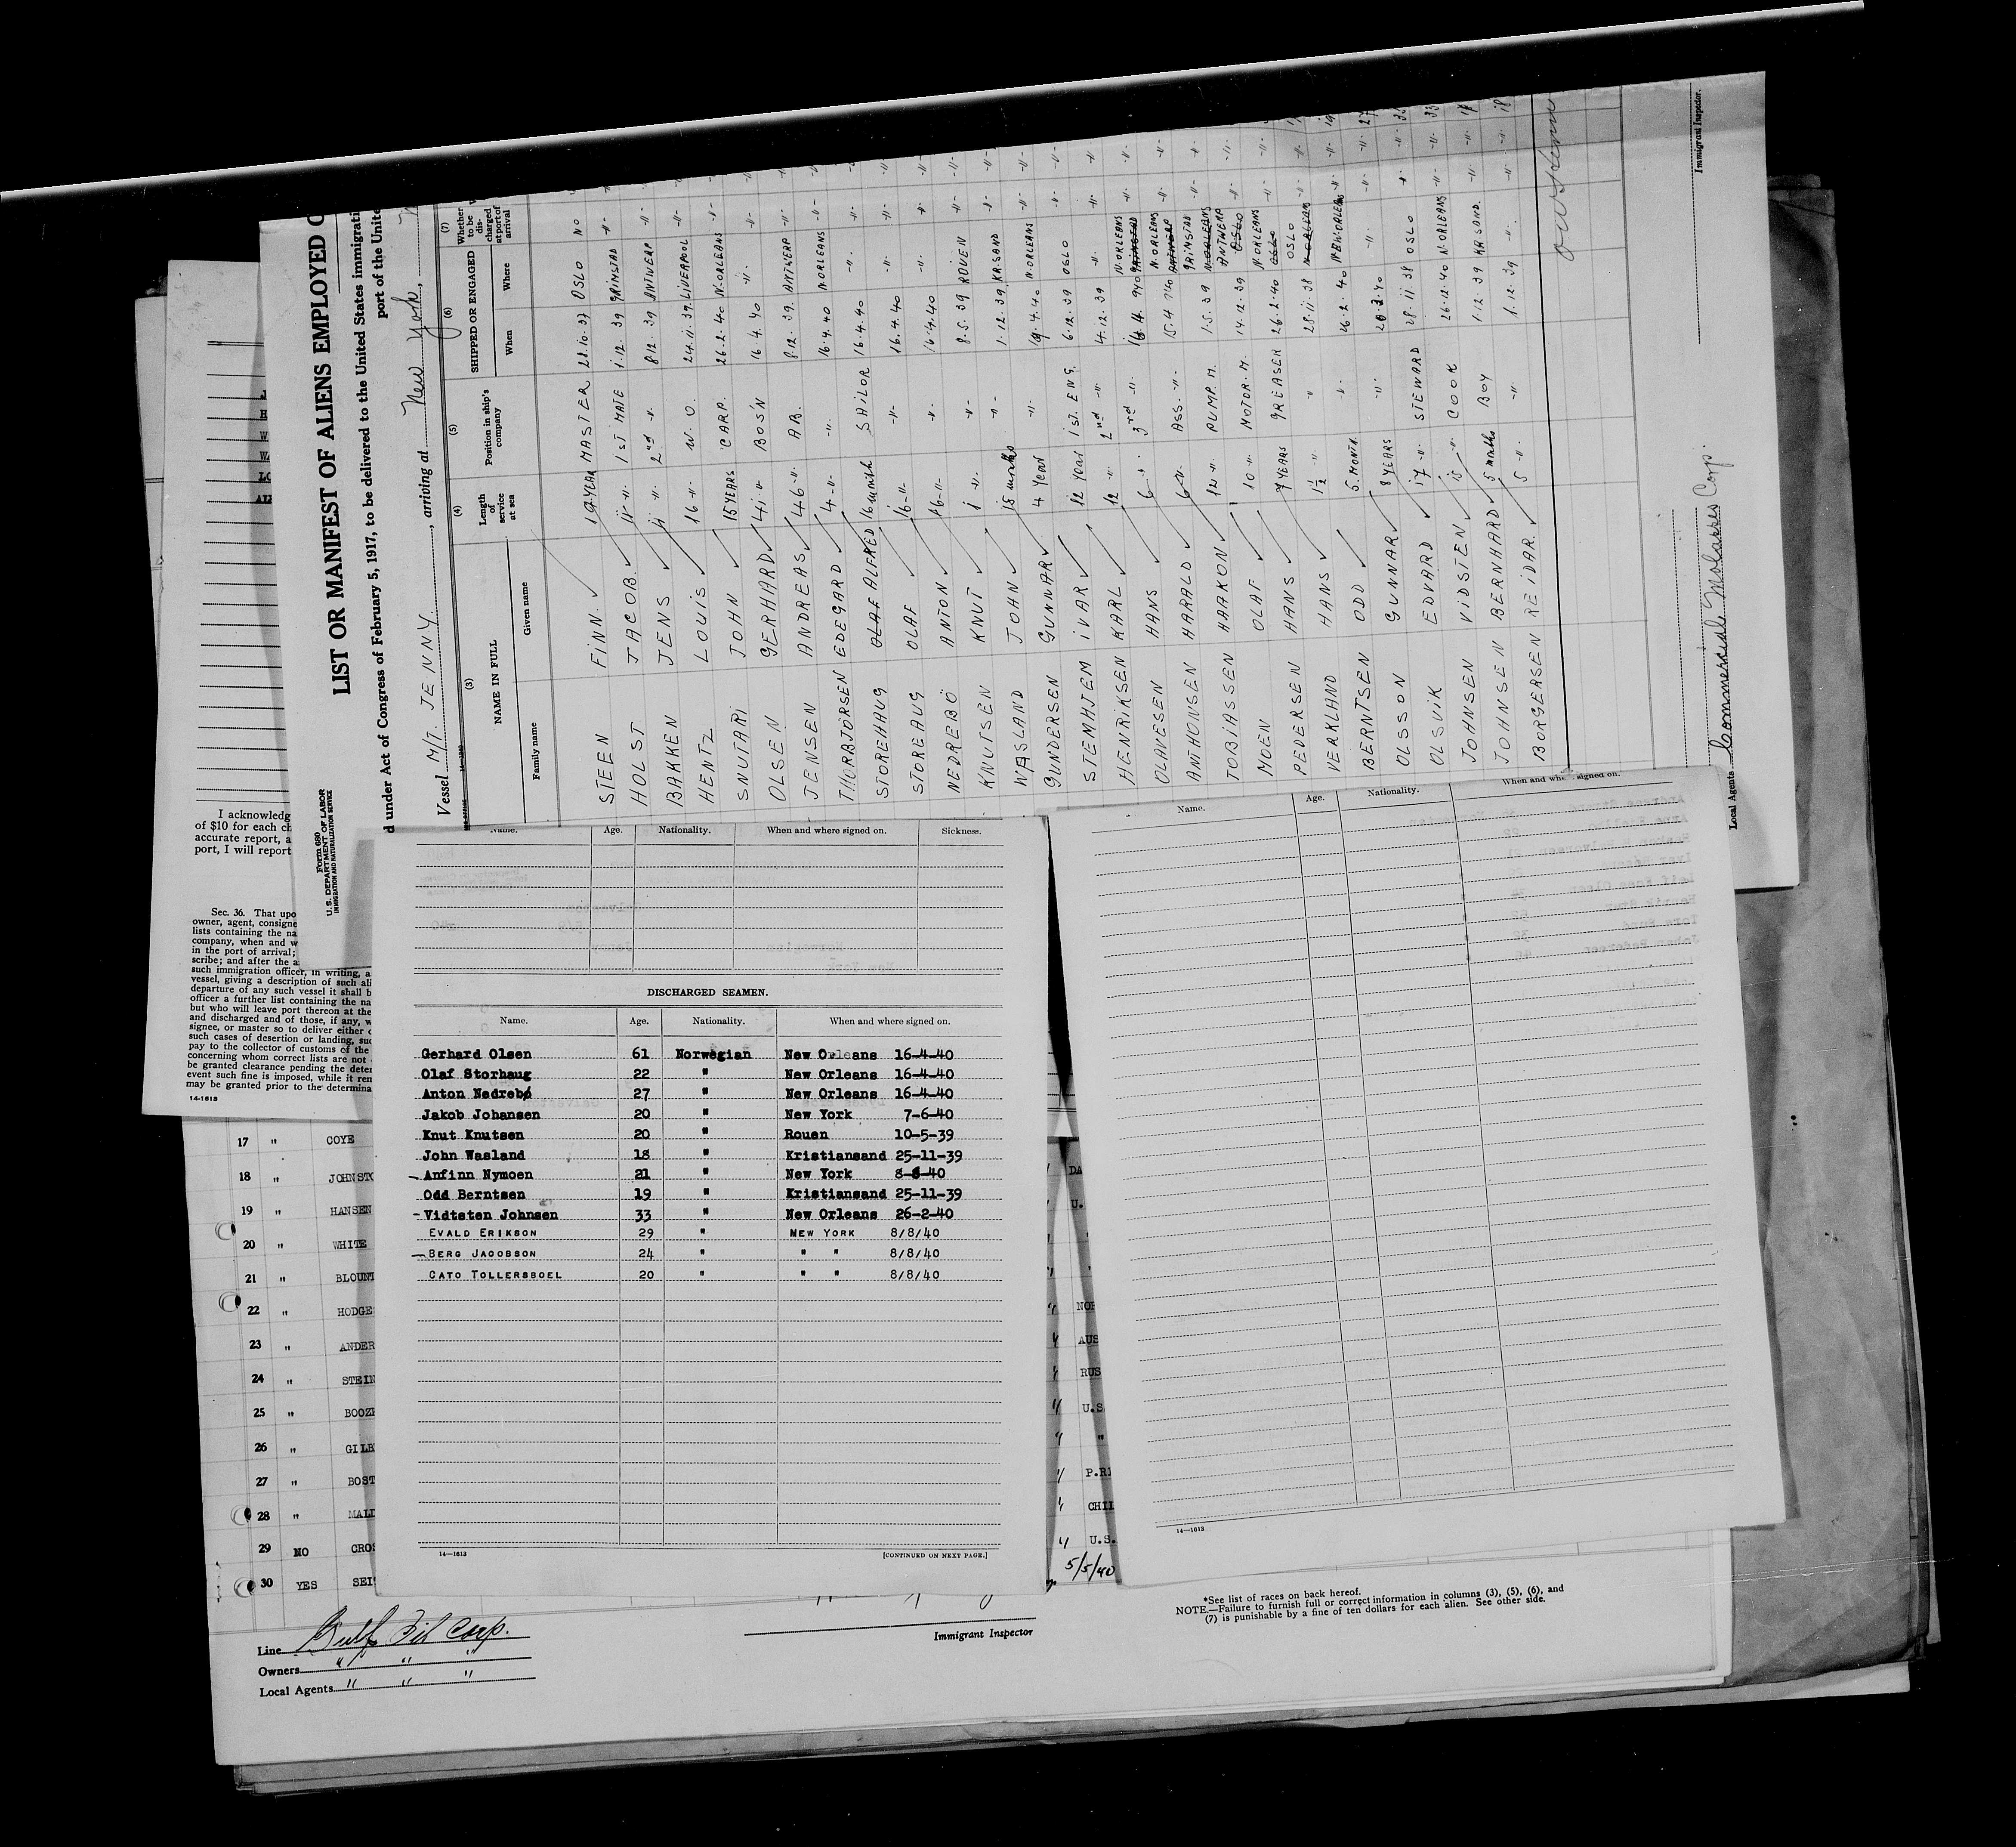 LIST OR MANIFEST OF ALIENS EMPLOYED
under Act of Congress of February 5, 1917, to be delivered to the United States immigrati
port of the Unite
Form 680
U. S. DEPARTMENT OF LABOR
IMMIGRATION AND NATURALIZATION SERVICE
Vessel M/T. JENNY. , arriving at New York,
(3) (4) (5) (6) (7)
NAME IN FULL Length of service at sea Position in ship's company SHIPPED OR ENGAGED Whether to be discharged at port of arrival
Family name Given name When Where
STEEN FINN. MASTER 28.10.37 OSLO NO
HOLST JACOB. 11 -"- 1ST MATE 1.12.39 GRINSTAD -"-
BAKKEN JENS 11 -"- 2nd -"- 8.12.39 ANTVERP -"-
HENTZ LOUIS 16 -"- W. O. 24.11.39. LIVERPOOL -"-
SNUTARI JOHN 15 YEARS CARP. 26.2.40 N.ORLEANS -"-
OLSEN GERHARD 41 -"- BOS'N 16.4.40 -"- -"-
JENSEN ANDREAS 46 -"- AB. 8.12.39. ANTWERP -"-
THORBJÖRSEN EDEGARD 4 -"- -"- 16.4.40 N.ORLEANS -"-
STOREHAUG OLAF ALFRED 16 month SAILOR 16.4.40 -"- -"-
STOREAUG OLAF 16 -"- -"- 16.4.40 -"- -"-
NEDREBÖ ANTON 16 -"- -"- 16.4.40 -"- -"-
KNUTSEN KNUT 1 -"- -"- 8.5.39 ROUEN -"-
WASLAND JOHN 18 months -"- 1.12.39. KR.SAND -"-
GUNDERSEN GUNNAR 4 Year -"- 19.4.40 N.ORLEANS -"-
STEMHJEM IVAR 12 Year 1ST. ENG. 6.12.39 OSLO -"-
HENRIKSEN KARL 12 -"- 2nd -"- 4.12.39 -"- -"-
OLAVESEN HANS 6 -"- 3rd -"- N.ORLEANS GRINSTAD -"-
ANTHONSEN HARALD 6 -"- ASS. -"- 15.4.40 N.ORLEANS ANTWERP -"-
TOBIASSEN HAAKON 12 -"- PUMP. M. 1.5.39 GRINSTAD N.ORLEANS -"-
MOEN OLAF 10 -"- MOTOR. M. 14.12.39 ANTWERP OSLO -"-
PEDERSEN HANS 7 YEARS GREASER 26.2.40 N.ORLEANS OSLO -"-
VERKLAND HANS 1½ -"- " 28.11.38 OSLO N.ORLEANS -"-
BERNTSEN ODD 5. MONTH. -"- 26.2.40 NEW.ORLEANS -"-
OLSSON GUNNAR 8 YEARS -"- -"- -"-
OLSVIK EDVARD 17 -"- STEWARD 28.11.38 OSLO -"-
JOHNSEN VIDSTEN -"- COOK 26.12.40 N.ORLEANS -"-
JOHNSEN BERNHARD 5 months BOY 1.12.39 KR.SAND. -"-
BORGERSEN REIDAR. 5 -"- -"- 1.12.39 -"- -"-
Immigrant Inspector.
Local Agents Commercial Molasses Corp.
I acknowledg
of $10 for each ch
accurate report, a
port, I will report
Sec. 36. That upo
owner, agent, consigne
lists containing the na
company, when and w
in the port of arrival;
scribe; and after the a
such immigration officer, in writing, a
vessel, giving a description of such ali
departure of any such vessel it shall b
officer a further list containing the na
but who will leave port thereon at the
and discharged and of those, if any, w
signee, or master so to deliver either
such cases of desertion or landing, suc
pay to the collector of customs of the
concerning whom correct lists are not
be granted clearance pending the deter
event such fine is imposed, while it rem
may be granted prior to the determina
14-1613
Name. Age. Nationality. When and where signed on. Sickness.
DISCHARGED SEAMEN.
Name. Age. Nationality. When and where signed on.
Gerhard Olsen 61 Norwegian New Orleans 16-4-40
Olaf Storhaug 22 " New Orleans 16-4-40
Anton Nedrebø 27 " New Orleans 16-4-40
Jakob Johansen 20 " New York 7-6-40
Knut Knutsen 20 " Rouen 10-5-39
John Wasland 18 " Kristiansand 25-11-39
Anfinn Nymoen 21 " New York 8-8-40
Odd Berntsen 19 " Kristiansand 25-11-39
Vidtsten Johnsen 33 " New Orleans 26-2-40
EVALD ERIKSON 29 " NEW YORK 8/8/40
BERG JACOBSON 24 " " " 8/8/40
CATO TOLLERSBOEL 20 " " " 8/8/40
14-1613 [CONTINUED ON NEXT PAGE.]
Name. Age. Nationality. When and where signed on.
14-1613
17 " COYE
18 " JOHNSTO
19 " HANSEN
20 " WHITE
21 " BLOUNT
22 " HODGE
23 " ANDER
24 " STEIN
25 " BOOZE
26 " GILB
27 " BOST
28 " MALD
29 NO CROS
30 YES SEI
DA
U.
NOR
AUS
RUS
U.S
"
P.RI
CHIL
U.S.
5/5/40
Line Gulf Oil Corp.
Owners " " "
Local Agents " " "
Immigrant Inspector
*See list of races on back hereof.
NOTE.—Failure to furnish full or correct information in columns (3), (5), (6), and
(7) is punishable by a fine of ten dollars for each alien. See other side.